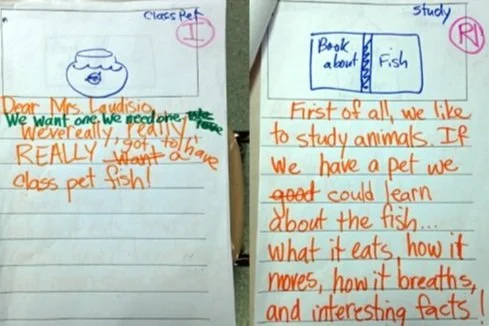 Class Pet
I
Dear Mrs. Laudisio,
We want one, we need one, we have
We vereally, really,
REALLY, got, to have
want a
class pet fish!
Study
R1
Book about Fish
First of all, we like
to study animals. If
we have a pet we
good could learn
about the fish...
what it eats, how it
moves, how it breaths,
and interesting facts!